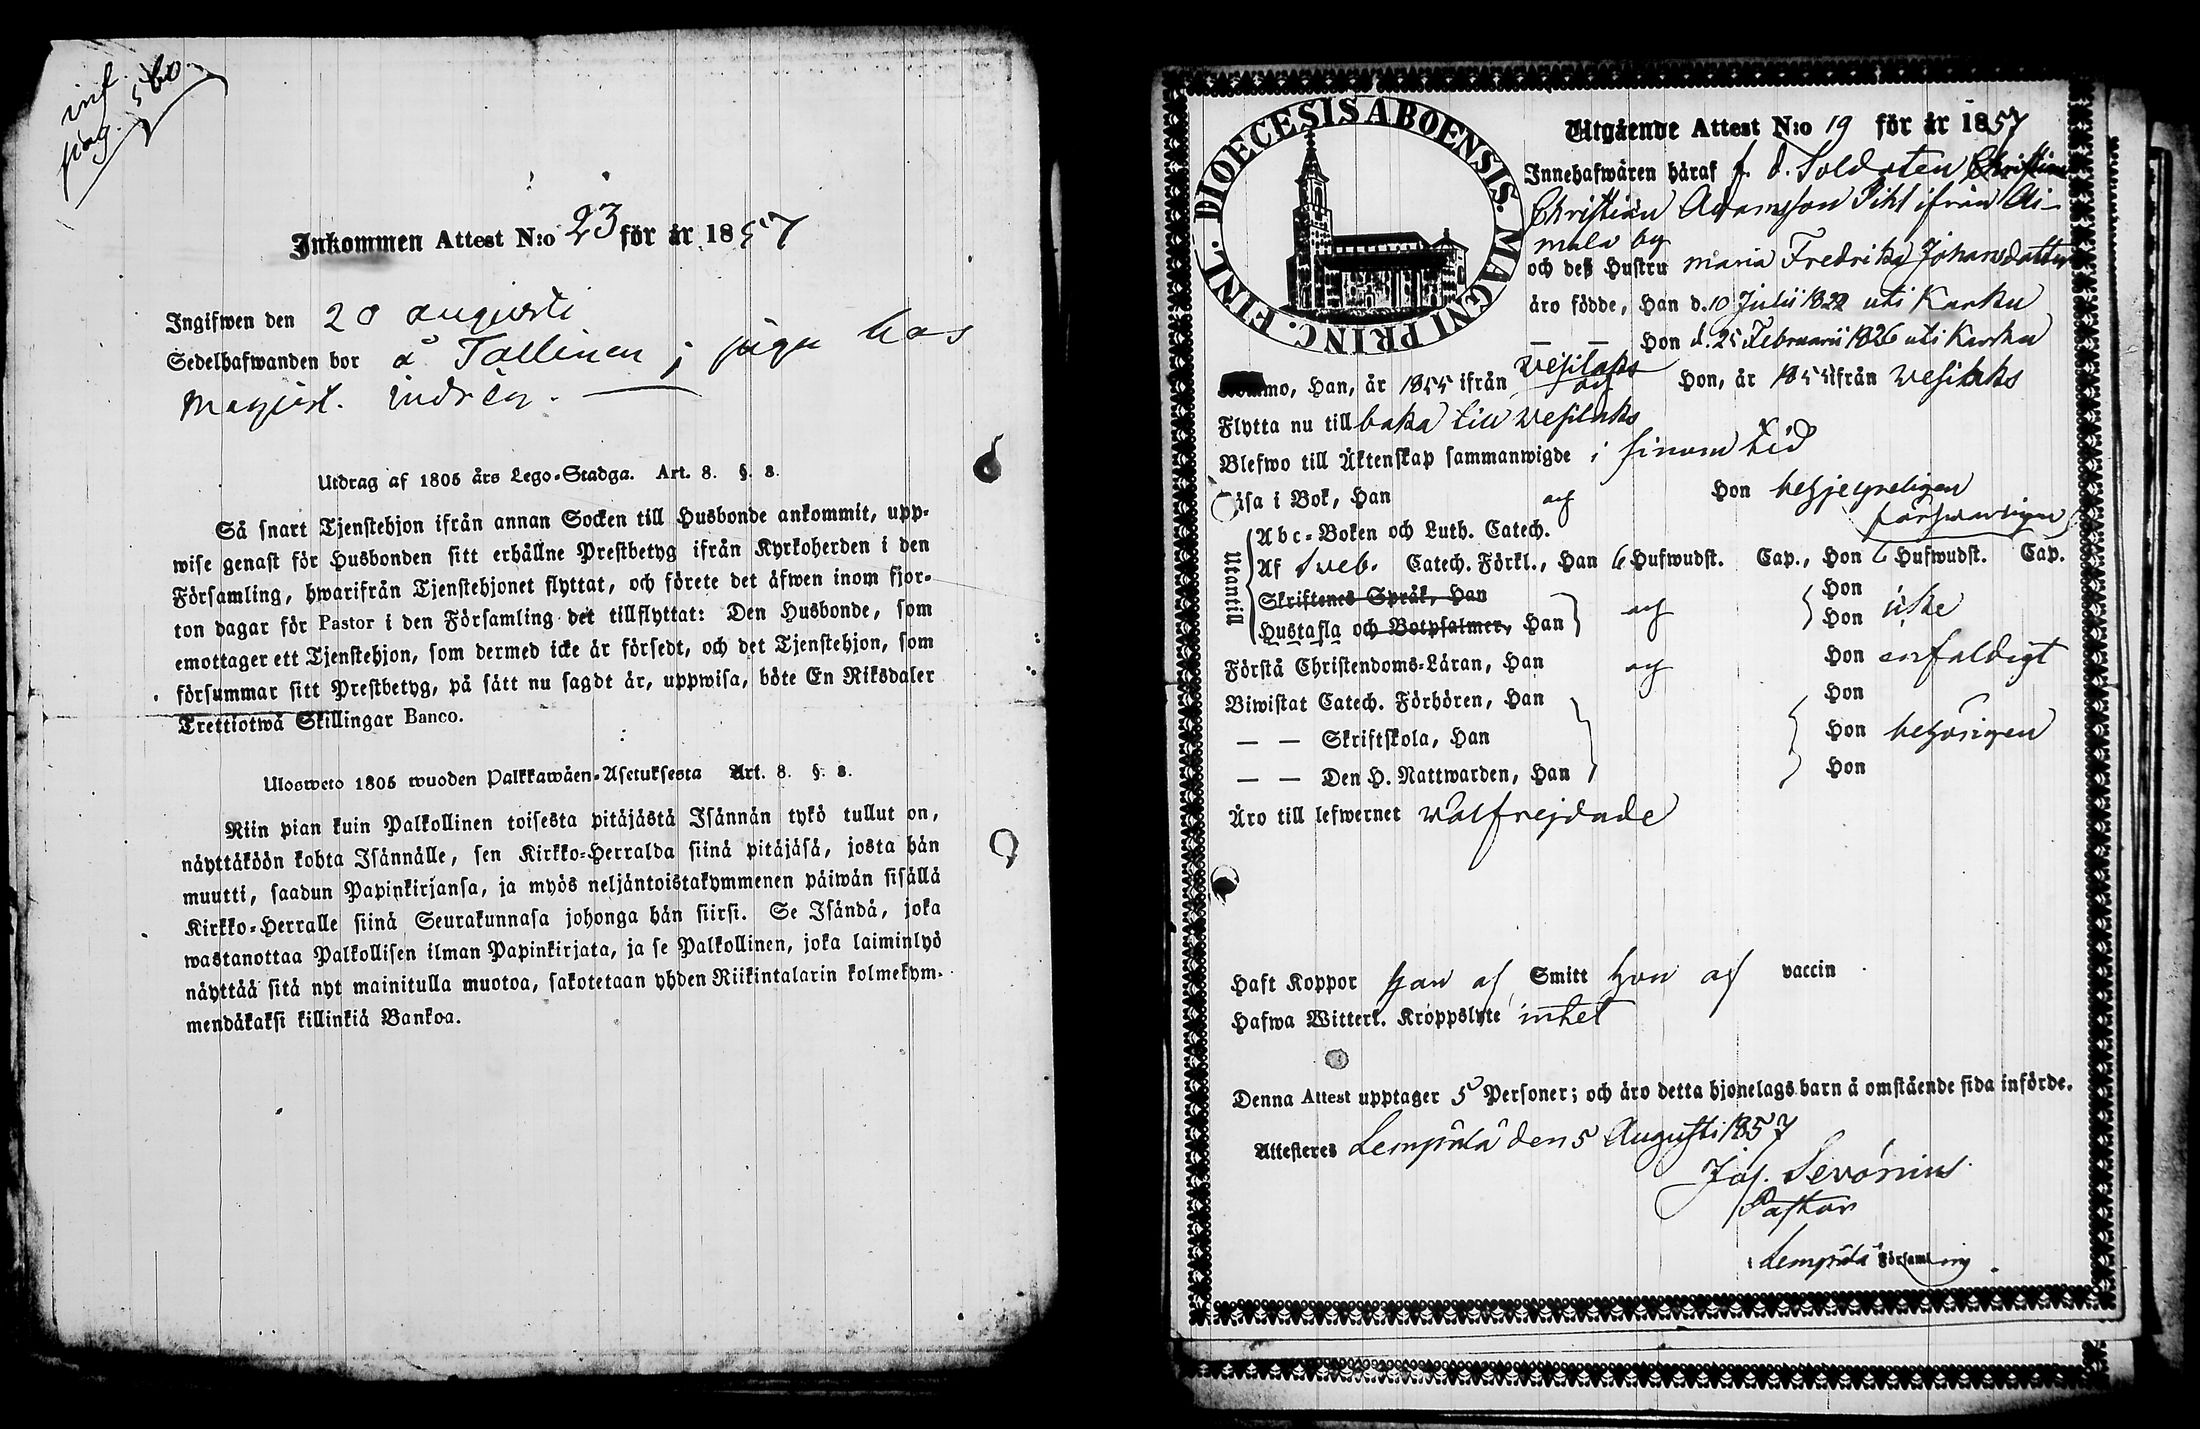 inf.
pag. 560.
Inkommen Attest N:o 23 för år 1857
Ingifwen den 20 augusti
Sedelhafwanden bor å Tallinen, piga hos
Magist. Indrén.
Utdrag af 1805 års Lego-Stadga. Art. 8. §. 3.
Så snart Tjenstehjon ifrån annan Socken till Husbonde ankommit, upp-
wise genast för Husbonden sitt erhållne Prestbetyg ifrån Kyrkoherden i den
Församling, hwarifrån Tjenstehjonet flyttat, och förete det äfwen inom fjor-
ton dagar för Pastor i den Församling det tillflyttat: Den Husbonde, som
emottager ett Tjenstehjon, som dermed icke är försedt, och det Tjenstehjon, som
försummar sitt Prestbetyg, på sätt nu sagdt är, uppwisa, böte En Riksdaler
Trettiotwå Skillingar Banco.
Ulosweto 1805 wuoden Palkkawäen-Asetuksesta Art. 8. §. 3.
Niin pian kuin Palkollinen toisesta pitäjästä Isännän tykö tullut on,
näyttäköön kohta Isännälle, sen Kirkko-Herralda siinä pitäjäsä, josta hän
muutti, saadun Papinkirjansa, ja myös neljäntoistakymmenen päiwän sisällä
Kirkko-Herralle siinä Seurakunnasa johonga hän siirsi. Se Isändä, joka
wastanottaa Palkollisen ilman Papinkirjata, ja se Palkollinen, joka laiminlyö
näyttää sitä nyt mainitulla muotoa, sakotetaan yhden Riikintalarin kolmekym-
mendäkaksi killinkiä Bankoa.
DIOECESIS ABOENSIS. MAGNI PRINC. FINL.
Utgående Attest N:o 19 för år 1857
Innehafwären häraf f. d. Soldaten Christian
Christian Adamsson Pihl ifrån Ai-
mala by
och deß Hustru Maria Fredrika Johansdotter
äro födde, Han d. 10 Julii 1822 uti Karku
— — Hon d. 25 Februarii 1826 uti Karku
Kommo, Han, år 1855 ifrån Vesilaks och Hon, år 1855 ifrån Vesilaks
Flytta nu till baka till Vesilaks
Blefwo till Äktenskap sammanwigde i sinom tid
Läsa i Bok, Han och Hon begripeligen
försvarligen
Utantill
Abc-Boken och Luth. Catech.
Af Sveb. Catech. Förkl., Han 6 Hufwudst. Cap., Hon 6 Hufwudst. Cap.
Skriftenes Språk, Han Hon
Hustafla och Botpsalmer, Han och Hon icke
Förstå Christendoms-Läran, Han och Hon enfaldigt
Biwistat Catech. Förhören, Han Hon
— — Skriftskola, Han Hon behörigen
— — Den H. Nattwarden, Han Hon
Äro till lefwernet wälfrejdade
Haft Koppor Han af Smitt Hon af vaccin
Hafwa Witterl. Kroppslyte intet
Denna Attest upptager 5 Personer; och äro detta hjonelags barn å omstående sida införde.
Attesteres Lempälä den 5 Augusti 1857
Jos. Sevonius
Pastor
i Lempälä Församling